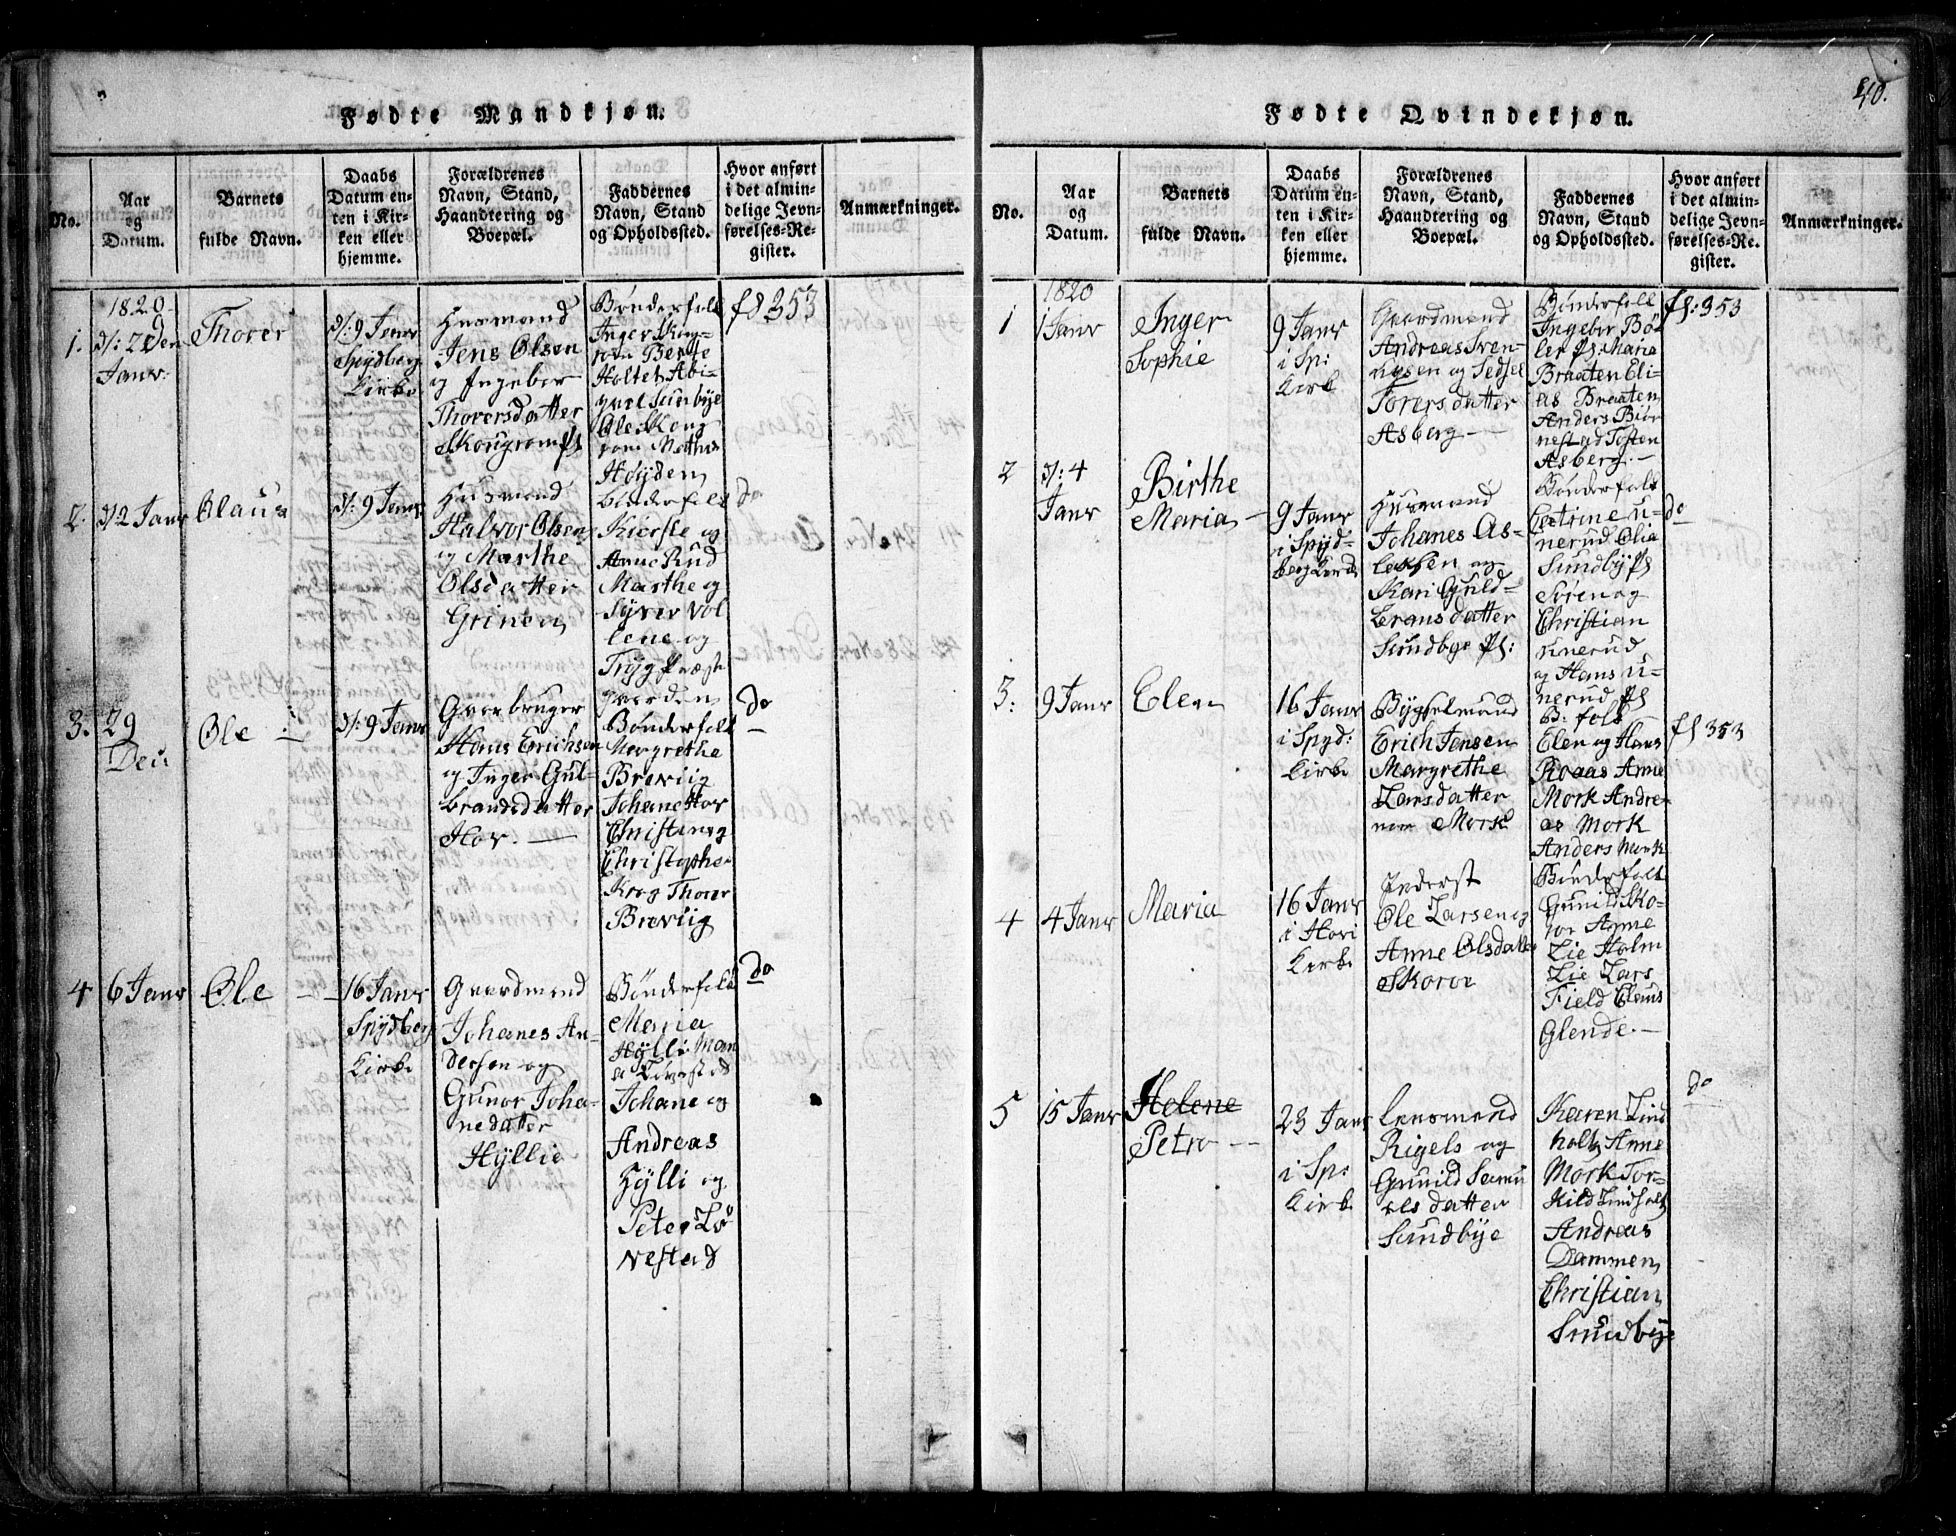 40.
Fødte Mandkjøn.
No.
Aar
og
Datum.
Barnets
fulde Navn.
Daabs
Datum en-
ten i Kir-
ken eller
hjemme.
Forældrenes
Navn, Stand,
Haandtering og
Boepæl.
Faddernes
Navn, Stand
og Opholdssted.
Hvor anført
i det almin-
delige Jevn-
førelses-Re-
gister.
Anmærkninger.
1.
1820
Janr:
Thorer
9 Janr
Spydberg
Kirke
Huusmand
Jens Olsen
og Ingebor
Thorersdatter
Skougrom
Bønderfolk
Inger Skou-
rom Berthe
Holtet Abi-
gael Sunbye
Ole Skoug
rom Mathis
Høyden
fl 353
2.
2 Janr
Olaus
9 Janr
Husmand
Halvor Olsen
og Marthe
Olsdatter
Grinen
Bønderfolk
Kierstie og
Arne Rud
Marthe og
Syver Vol
lene og
Tryg Præste
gaarden
do
3.
29
Dec:
Ole
9 Janr
Gaarbruger
Hans Erichsen
og Inger Gul-
brandsdatter
Hov.
Bønderfolk
Margrethe
Breviig
Johane Hov
Christian og
Christopher
Krog Thorer
Breviig
do
4
6 Janr
Ole
16 Janr
Spydberg
Kirke
Gaardmand
Johanes An-
dersen og
Gunor Joha-
nedatter
Hyllie
Bønderfolk
Maria
Hylli
Johane og
Andreas
Hylli og
Peter Lø
vestad
do
Fødte Qvindekjøn.
No.
Aar
og
Datum.
Barnets
fulde Navn.
Daabs
Datum en-
ten i Kir-
ken eller
hjemme.
Forældrenes
Navn, Stand,
Haandtering og
Boepæl.
Faddernes
Navn, Stand
og Opholdssted.
Hvor anført
i det almin-
delige Jevn-
førelses-Re-
gister.
Anmærkninger.
1
1820
1 Janr
Inger
Sophie
9 Janr
i Sp:
Kirke
Gaardmand
Andreas Sven-
og Sedsel
Torersdatter
Asberg
Bønderfolk
Ingebor Bøl
ler Maria
Braaten Eli-
as Braaten
Anders Biør
nestad Tosten
Asberg.
fl: 353
2
4
Janr
Birthe
Maria
9 Janr
i Spyd-
berg Kirke
Husmand
Johanes As-
lessen og
Kari Guld-
bransdatter
Sundbye Pl:
Bønderfolk
Catrine U-
nerud Olia
Sundby Pl
Søren og
Christian
Unerud
og Hans U-
nerud Pl
do
3:
9 Janr
Elen
16 Janr
i Spyd:
Kirke
Bygselmand
Erich Jensen
Margrethe
Larsdatter
Mork
B: folk
Elen og Hans
Raaas Anne
Mork Andre-
as Mork
Anders Mork
fl 353
4
4 Janr
Maria
16 Janr
i Hovi
Kirke
Inderst
Ole Larsen og
Anne Olsdatter
Skoror
Bønderfolk
Gunild Sko-
ror Anne
Lie Holm
Lie Lars
Field Claus
Glende.
5
15 Janr
Helene
Petra
23 Janr
i Sp:
Kirke
Lensmand
Rigels og
Gunild Samu
elsdatter
Sundbye
Karen Lind
holt Anne
Mork Tor-
kild Lindholt
Andreas
Dammen
Christian
Sundbye
do